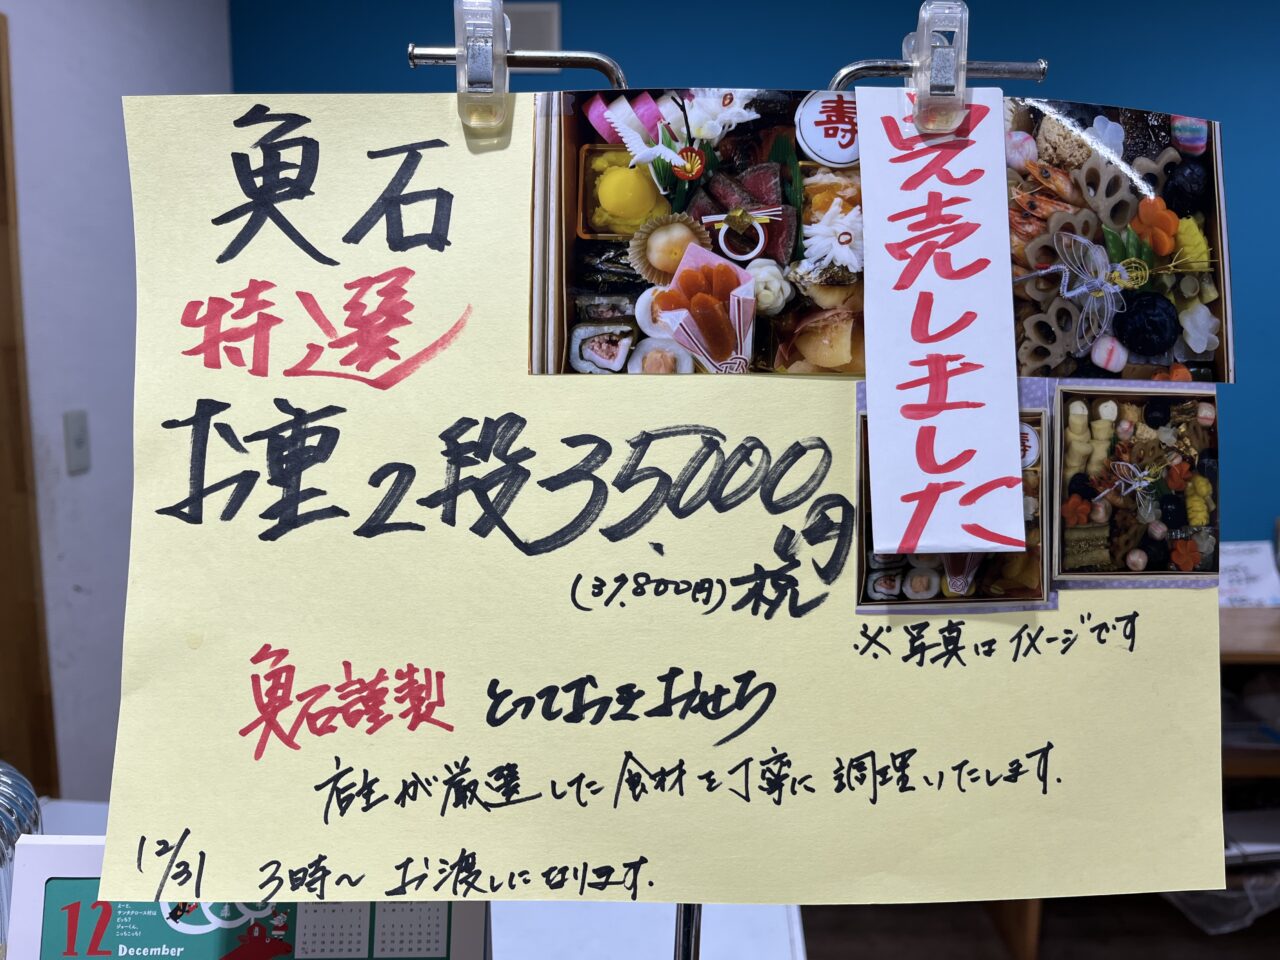 魚石
特選
お重2段35,000円
(37,800円)税
寿
完売しました
※写真はイメージです
魚石謹製 とっておきおせち
店主が厳選した食材を丁寧に調理いたします.
12/31 3時〜 お渡しになります.
12
December